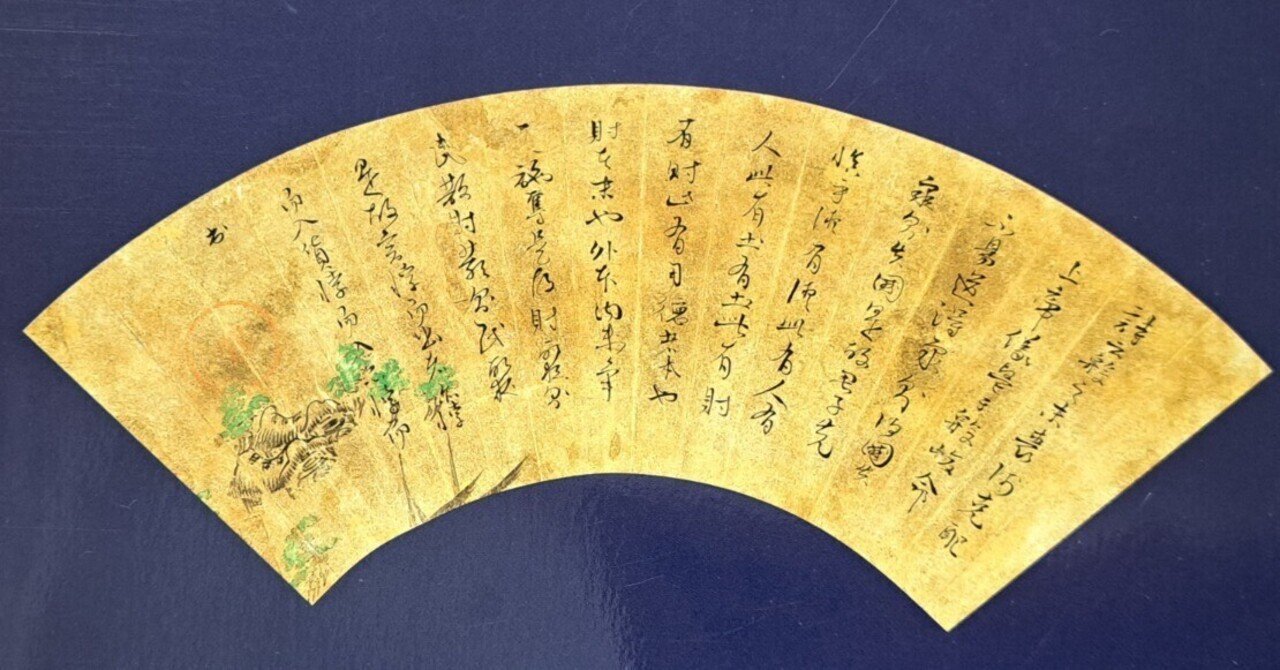 詩云殷之未喪師克配
上帝儀監于殷峻命
不易道得衆則得國失
衆則失國是故君子先
慎乎德有德此有人有
人此有土有土此有財
有財此有用德者本也
財者末也外本内末争
民施奪是故財聚則
民散財散則民聚
是故言悖而出者亦悖
而入貨悖而入者亦悖而
出